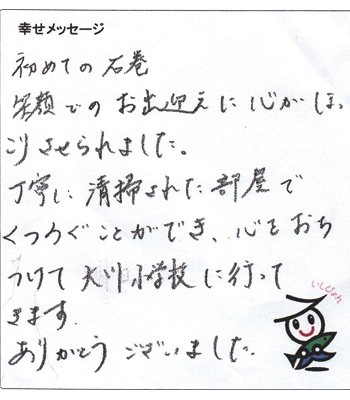 幸せメッセージ
初めての石巻
笑顔でのお出迎えに心がほっ
こりさせられました。
丁寧に清掃された部屋で
くつろぐことができ、心をおち
つけて大川小学校に行って
きます。
ありがとうございました。
いしぴょん